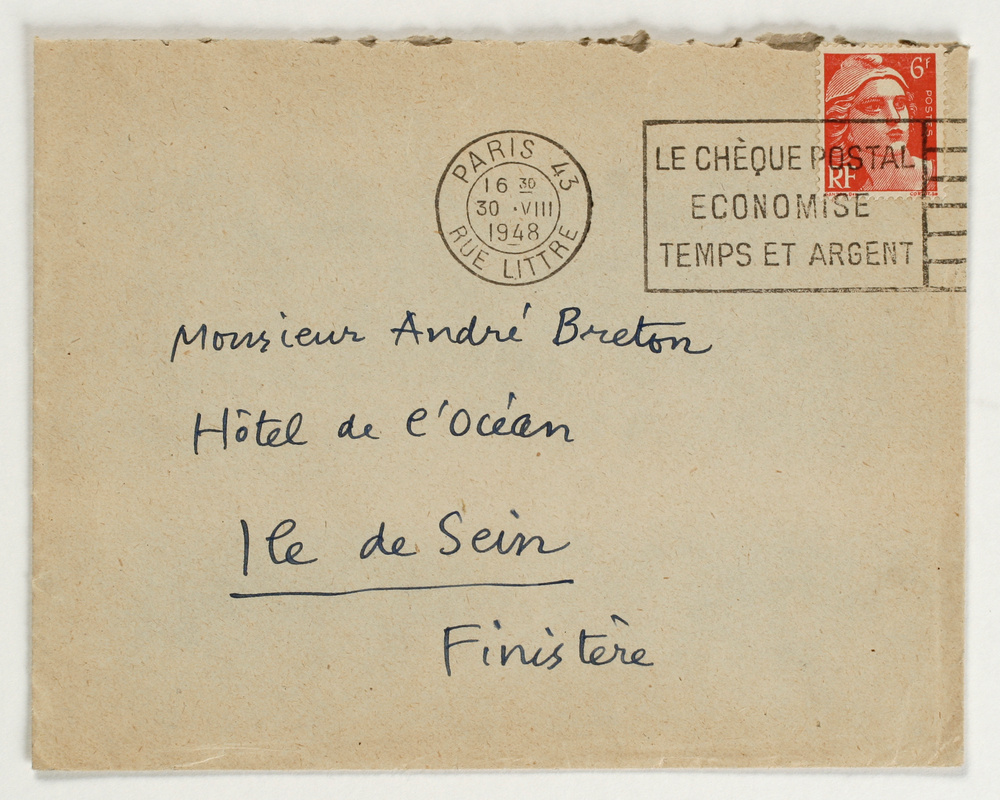 6F
POSTES
RF
PARIS 43
16 30
30 ·VIII
1948
RUE LITTRE
LE CHÈQUE POSTAL
ECONOMISE
TEMPS ET ARGENT
Monsieur André Breton
Hôtel de l'Océan
Ile de Sein
Finistère